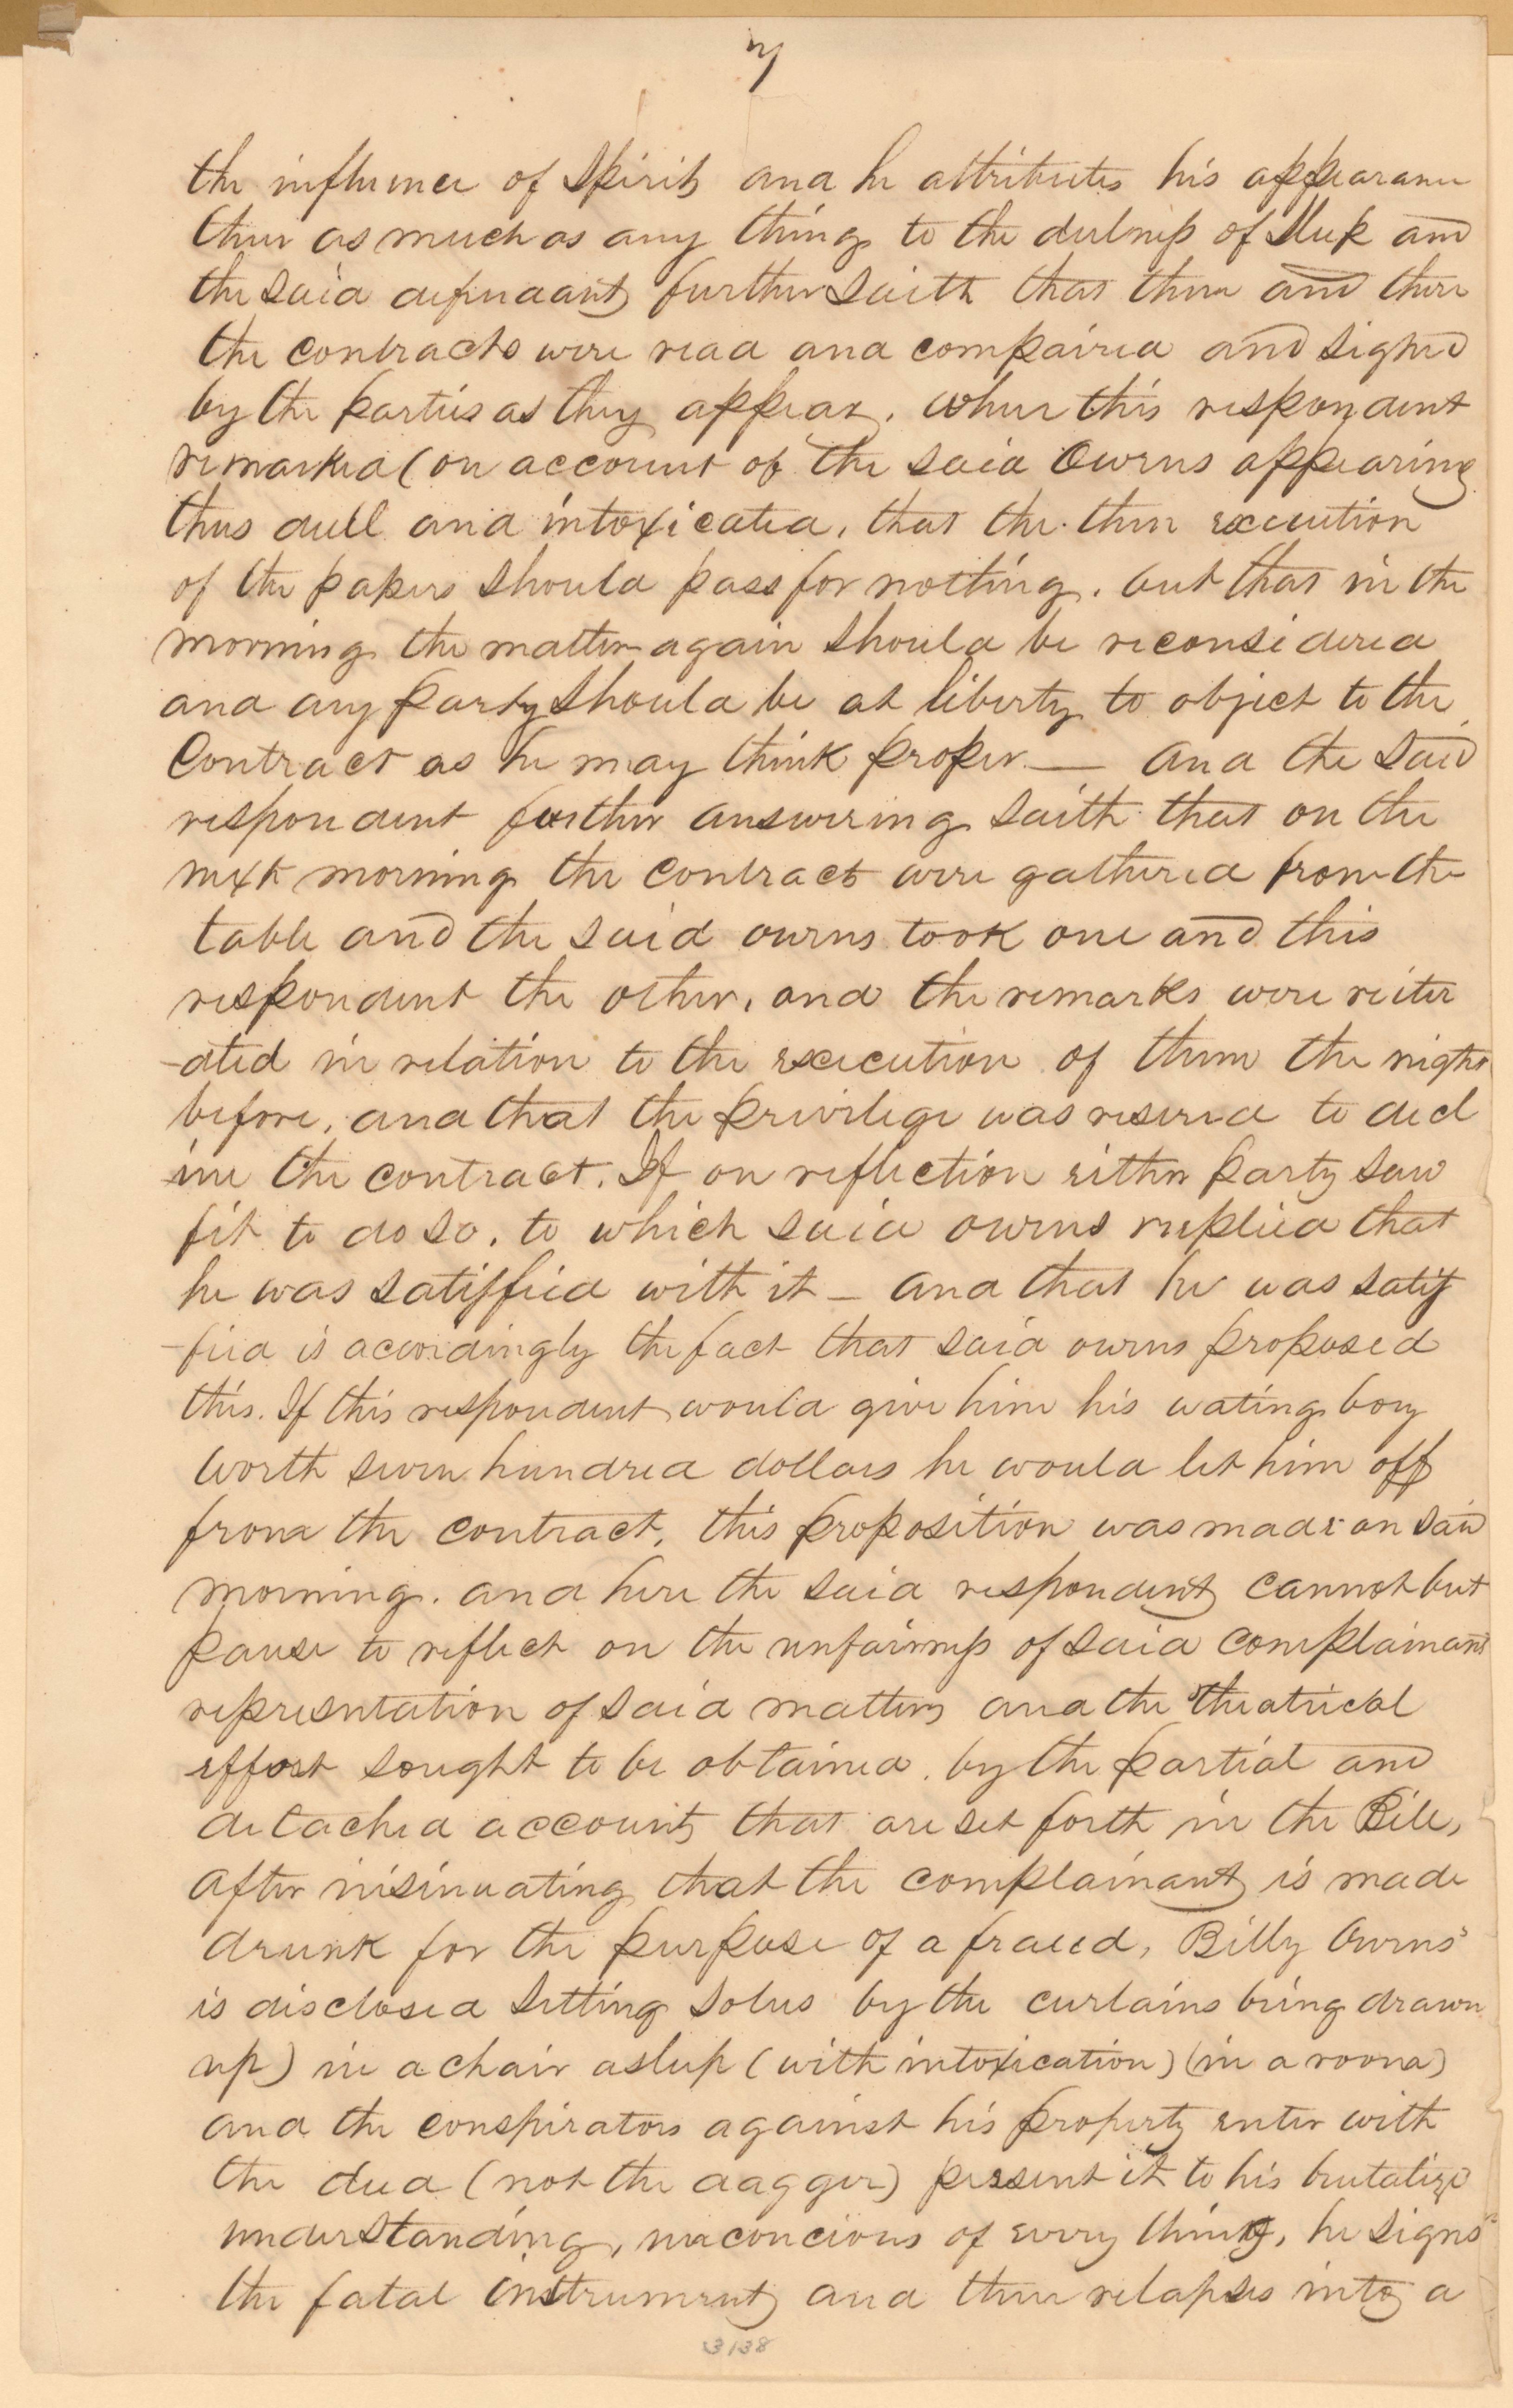 7
the influence of Spirits and he attributes his appearance
then as much as any thing to the dulness of Sleep and
the said defendant further saith that then and there
the contracts were read and compaired and signed
by the parties as they appear. when this respondent
remarked (on account of the said Owens appearing
thus dull and intoxicated, that the then execution
of the papers should pass for nothing. but that in the
morning the matter again should be reconsidered
and any party should be at liberty to object to the
Contract as he may think proper — And the said
respondent further answering saith that on the
next morning the contracts were gathered from the
table and the said owens took one and this
respondent the other, and the remarks were reiter
-ated in relation to the execution of them the night
before, and that the privilege was reserved to decl
ine the contract. If on reflection either party saw
fit to do so. to which said owens replied that
he was satisfied with it – and that he was satis
-fied is accordingly the fact that said owens proposed
this. If this respondent would give him his wating boy
worth seven hundred dollars he would let him off
from the contract. this proposition was made on said
morning. and here the said respondent cannot but
pause to reflect on the unfairness of said complainants
representation of said matters and the theatrical
effort sought to be obtained. by the partial and
detached accounts that are set forth in the Bill,
After insinuating that the complainant is made
drunk for the purpose of a fraud, Billy Owens
is disclosed sitting solus by the curtains being drawn
up) in a chair asleep (with intoxication) (in a room)
and the conspirators against his property enter with
the deed (not the dagger) present it to his brutalized
understanding, unconcious of every thing, he signs
the fatal instrument and then relapses into a
3138